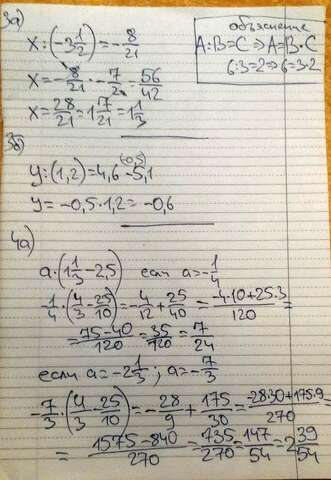 3а)
x:(-3 1/2)=-8/21
x=-8/21·-7/2=56/42
x=28/21=1 7/21=1 1/3
объяснение
A:B=C⇒A=B·C
6:3=2⇒6=3·2
3б)
y:(1,2)=4,6-5,1
(-0,5)
y=-0,5·1,2=-0,6
4а)
a·(1 1/3-2,5) если a=-1/4
-1/4·(4/3-25/10)=-4/12+25/40=(-4·10+25·3)/120=
=(75-40)/120=35/120=7/24
если a=-2 1/3; a=-7/3
-7/3·(4/3-25/10)=-28/9+175/30=(-28·30+175·9)/270
=(1575-840)/270=735/270=147/54=2 39/54